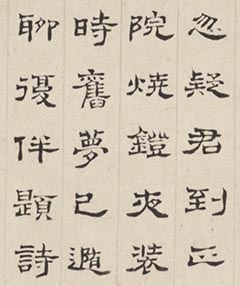 忽疑君到正
院燒鐙夜装
時舊夢已
聊復伴題詩